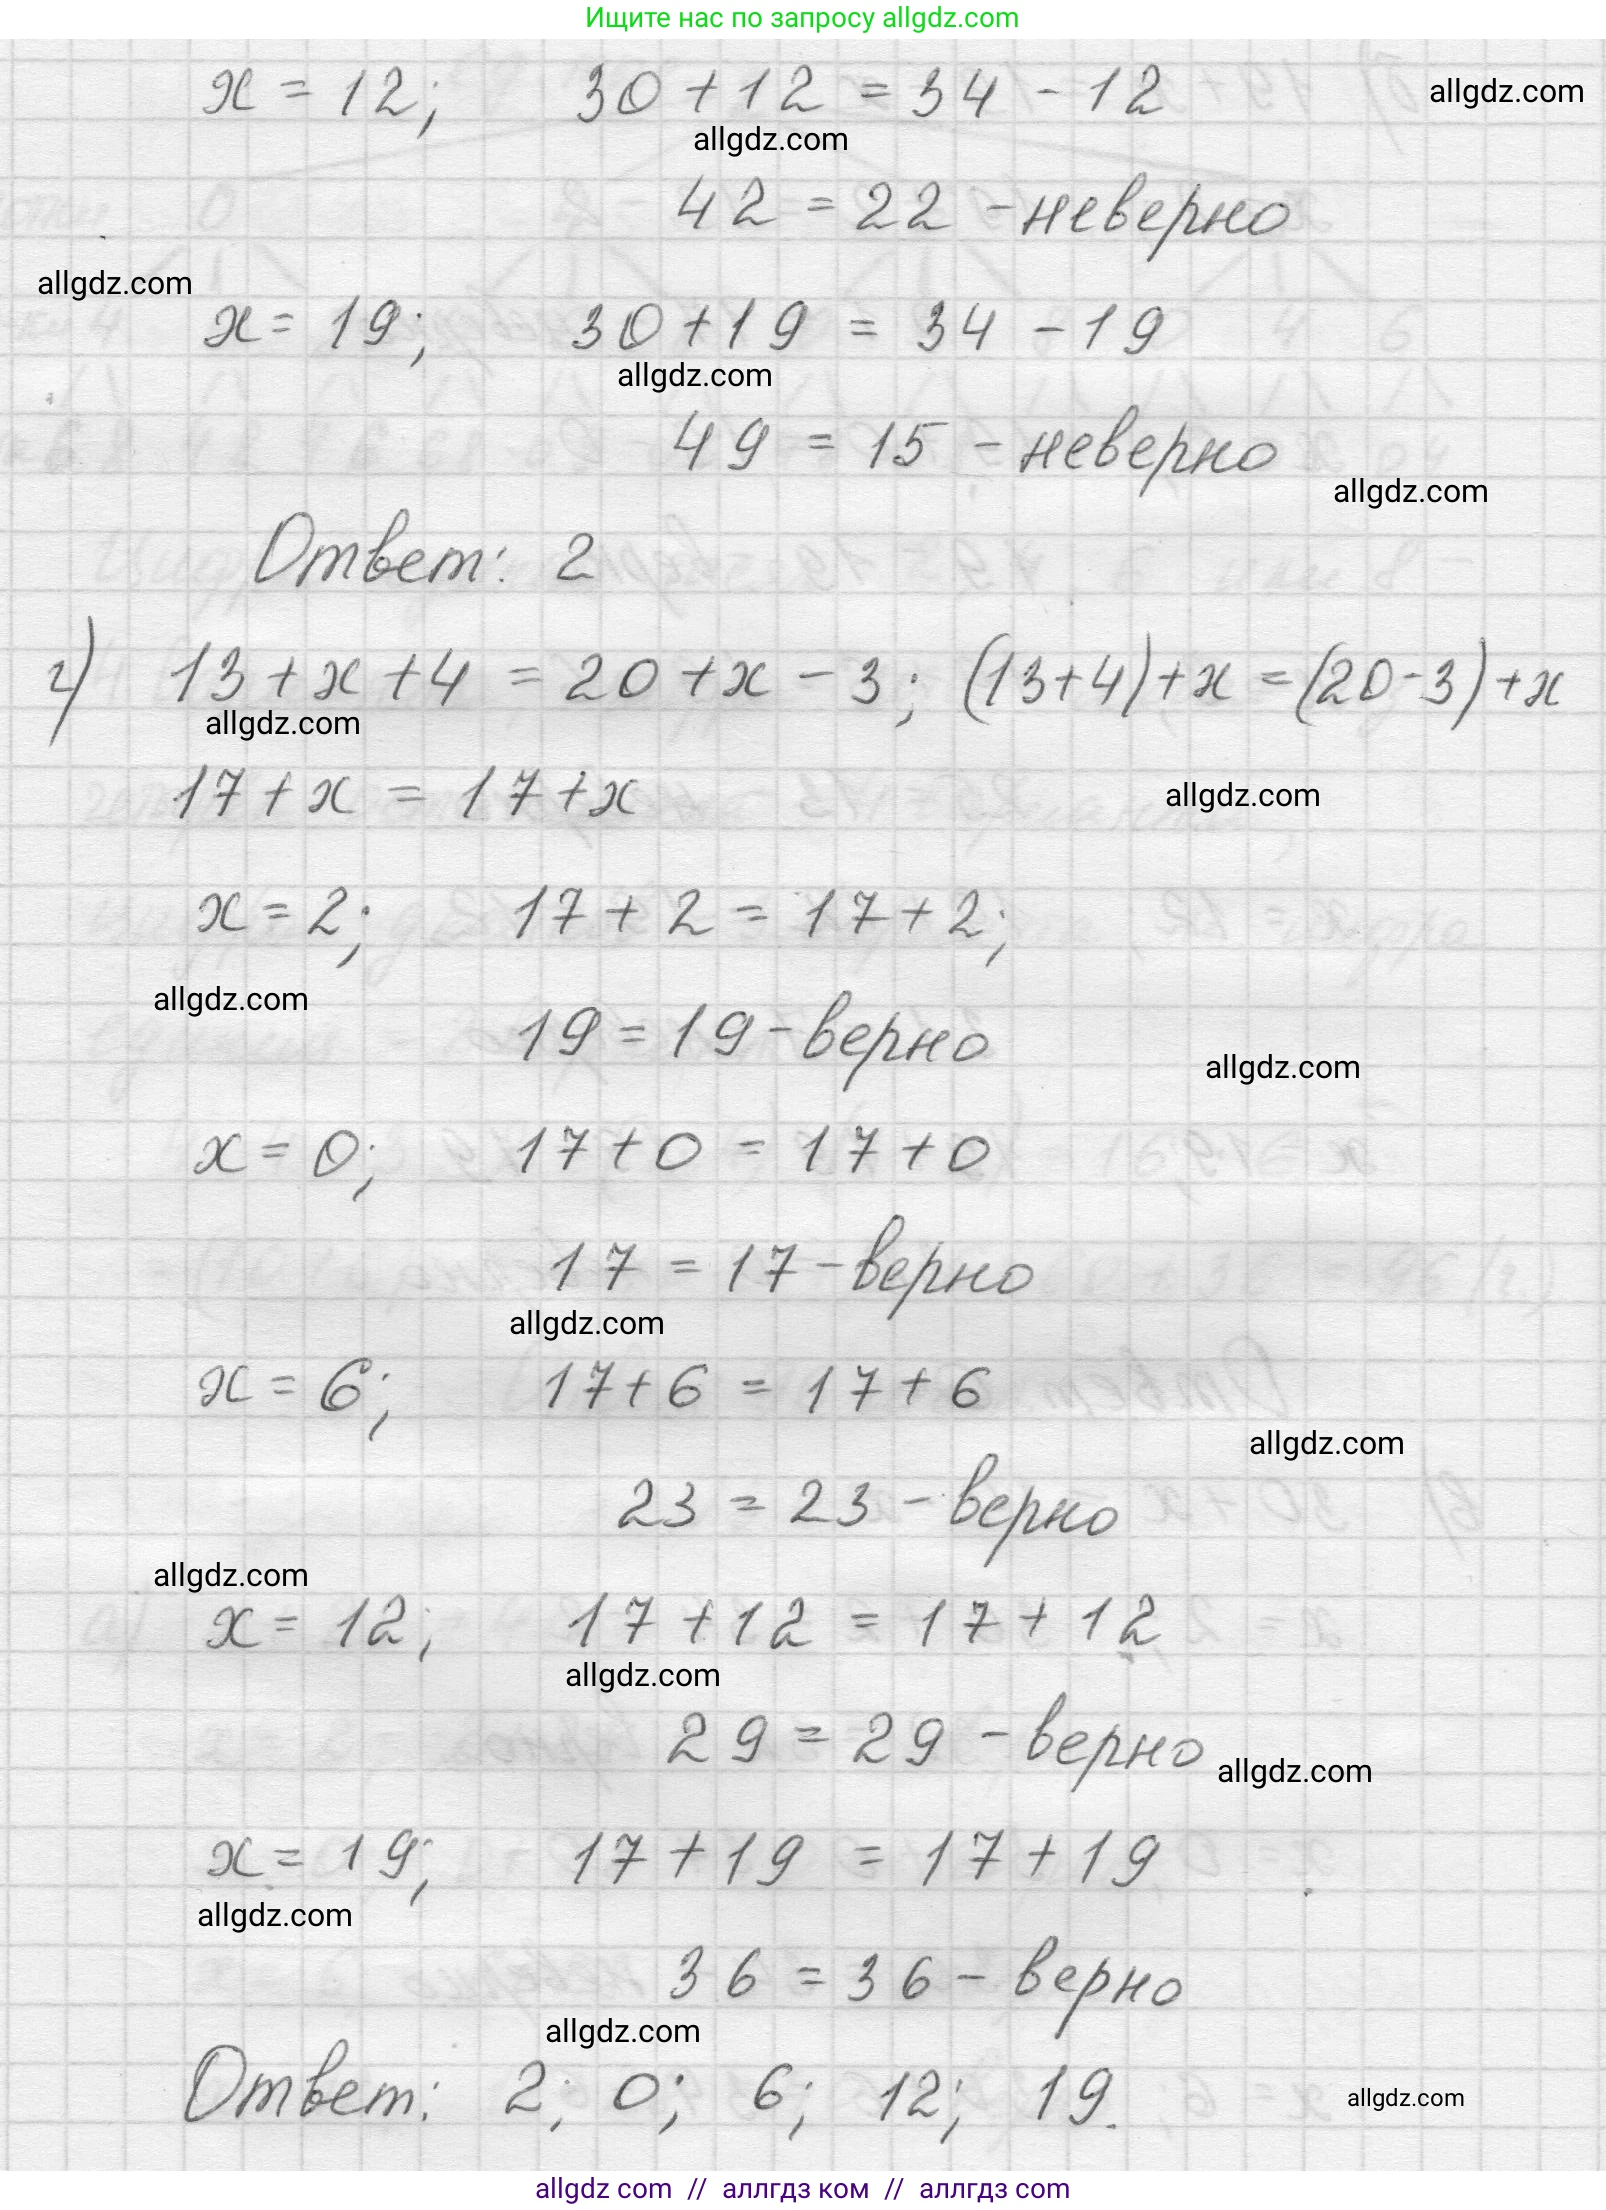 Ищите нас по запросу allgdz.com
x = 12; 30 + 12 = 34 - 12
allgdz.com
allgdz.com
42 = 22 - неверно
allgdz.com
x = 19; 30 + 19 = 34 - 19
allgdz.com
49 = 15 - неверно
allgdz.com
Ответ: 2
г) 13 + x + 4 = 20 + x - 3; (13+4)+x = (20-3)+x
allgdz.com
17 + x = 17 + x
allgdz.com
x = 2; 17 + 2 = 17 + 2;
allgdz.com
19 = 19 - верно
allgdz.com
x = 0; 17 + 0 = 17 + 0
17 = 17 - верно
allgdz.com
x = 6; 17 + 6 = 17 + 6
allgdz.com
23 = 23 - верно
allgdz.com
x = 12; 17 + 12 = 17 + 12
allgdz.com
29 = 29 - верно
allgdz.com
x = 19; 17 + 19 = 17 + 19
allgdz.com
36 = 36 - верно
allgdz.com
Ответ: 2; 0; 6; 12; 19.
allgdz.com
allgdz com // аллгдз ком // аллгдз com